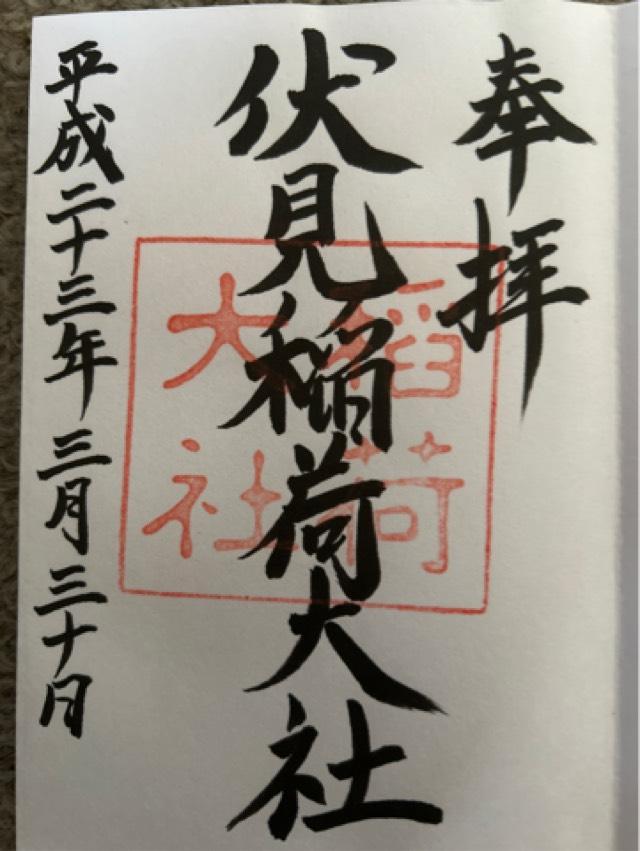 奉拝
伏見稲荷大社
稲荷
大社
平成二十三年三月三十日